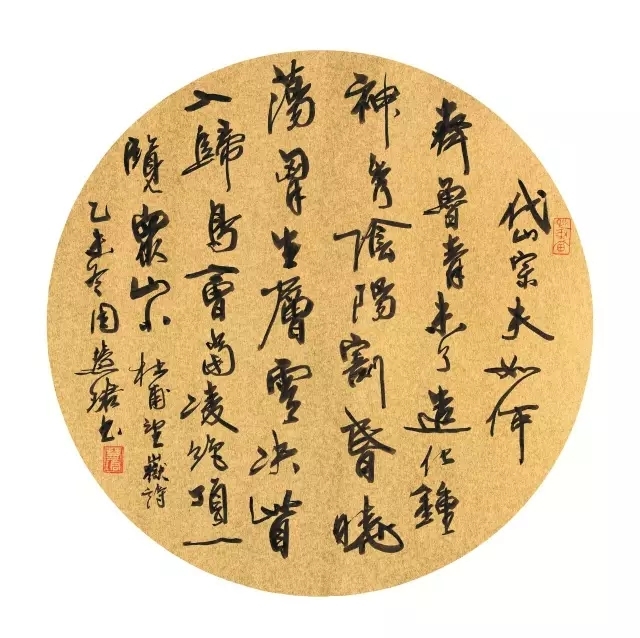 岱宗夫如何
齊魯青未了造化鍾
神秀陰陽割昏曉
蕩胷生層雲决眥
入歸鳥會當凌絕頂一
覽眾山小 杜甫望嶽詩
乙未冬周慧珺书